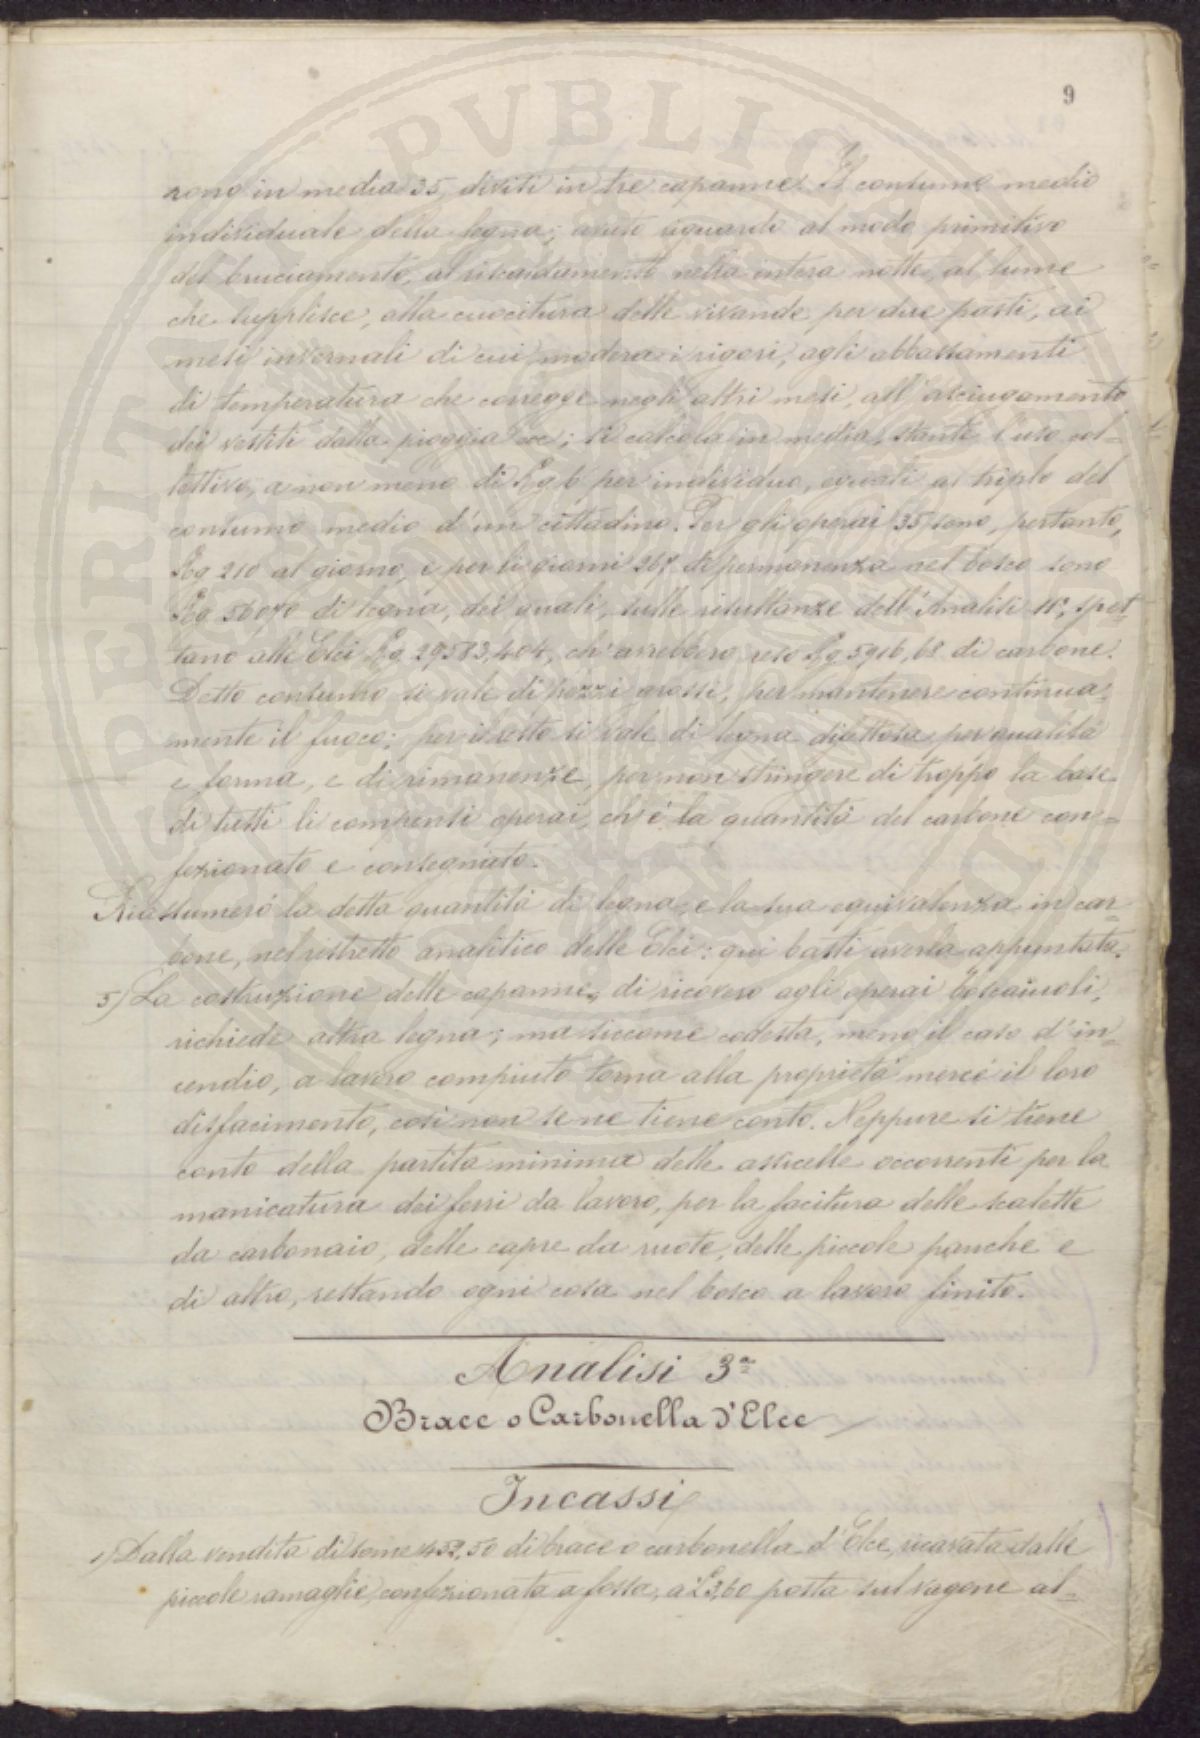 9
rono in media 35, divisi in tre capanne. Il consumo medio
individuale della legna, avuto riguardo al modo primitivo
del bruciamento, al riscaldamento nella intera notte, al lume
che supplisce, alla cuocitura delle vivande per due pasti, ai
mesi invernali di cui modera i rigori, agli abbassamenti
di temperatura che corregge negli altri mesi, all'asciugamento
dei vestiti dalla pioggia ecc; si calcola in media, stante l'uso col=
lettivo, a non meno di Kg 6 per individuo, eguali al triplo del
consumo medio d'un cittadino. Per gli operai 35 sono, pertanto,
Kg 210 al giorno, e per li giorni 267 di permanenza nel bosco sono
Kg 56070 di legna, dei quali, sulle risultanze dell'Analisi 1ª, spet
tano alle Elci Kg 29583,404, ch'avrebbero reso Kg 5916,68 di carbone.
Detto consumo si vale di pezzi grossi, per mantenere continua=
mente il fuoco; per il resto si vale di legna difettosa per qualità
e forma, e di rimanenze, per non stringere di troppo la base
di tutti li compensi operai, ch'è la quantità del carbone con=
fezionato e consegnato.
Riassumerò la detta quantità di legna, e la sua equivalenza in car=
bone, nel ristretto analitico delle Elci: qui basti averla appuntata.
5) La costruzione delle capanne, di ricovero agli operai boscaiuoli,
richiede altra legna; ma siccome codesta, meno il caso d'in=
cendio, a lavoro compiuto torna alla proprietà mercé il loro
disfacimento, così non se ne tiene conto. Neppure si tiene
conto della partita minima delle assicelle occorrenti per la
manicatura dei ferri da lavoro, per la facitura delle scalette
da carbonaio, delle capre da ruote, delle piccole panche e
di altro, restando ogni cosa nel bosco a lavoro finito.
Analisi 3ª
Brace o Carbonella d'Elce
Incassi
1) Dalla vendita di some 452,50 di brace o carbonella d'Elce, ricavata dalle
piccole ramaglie, confezionata a fossa, a £3,60 posta sul vagone al=